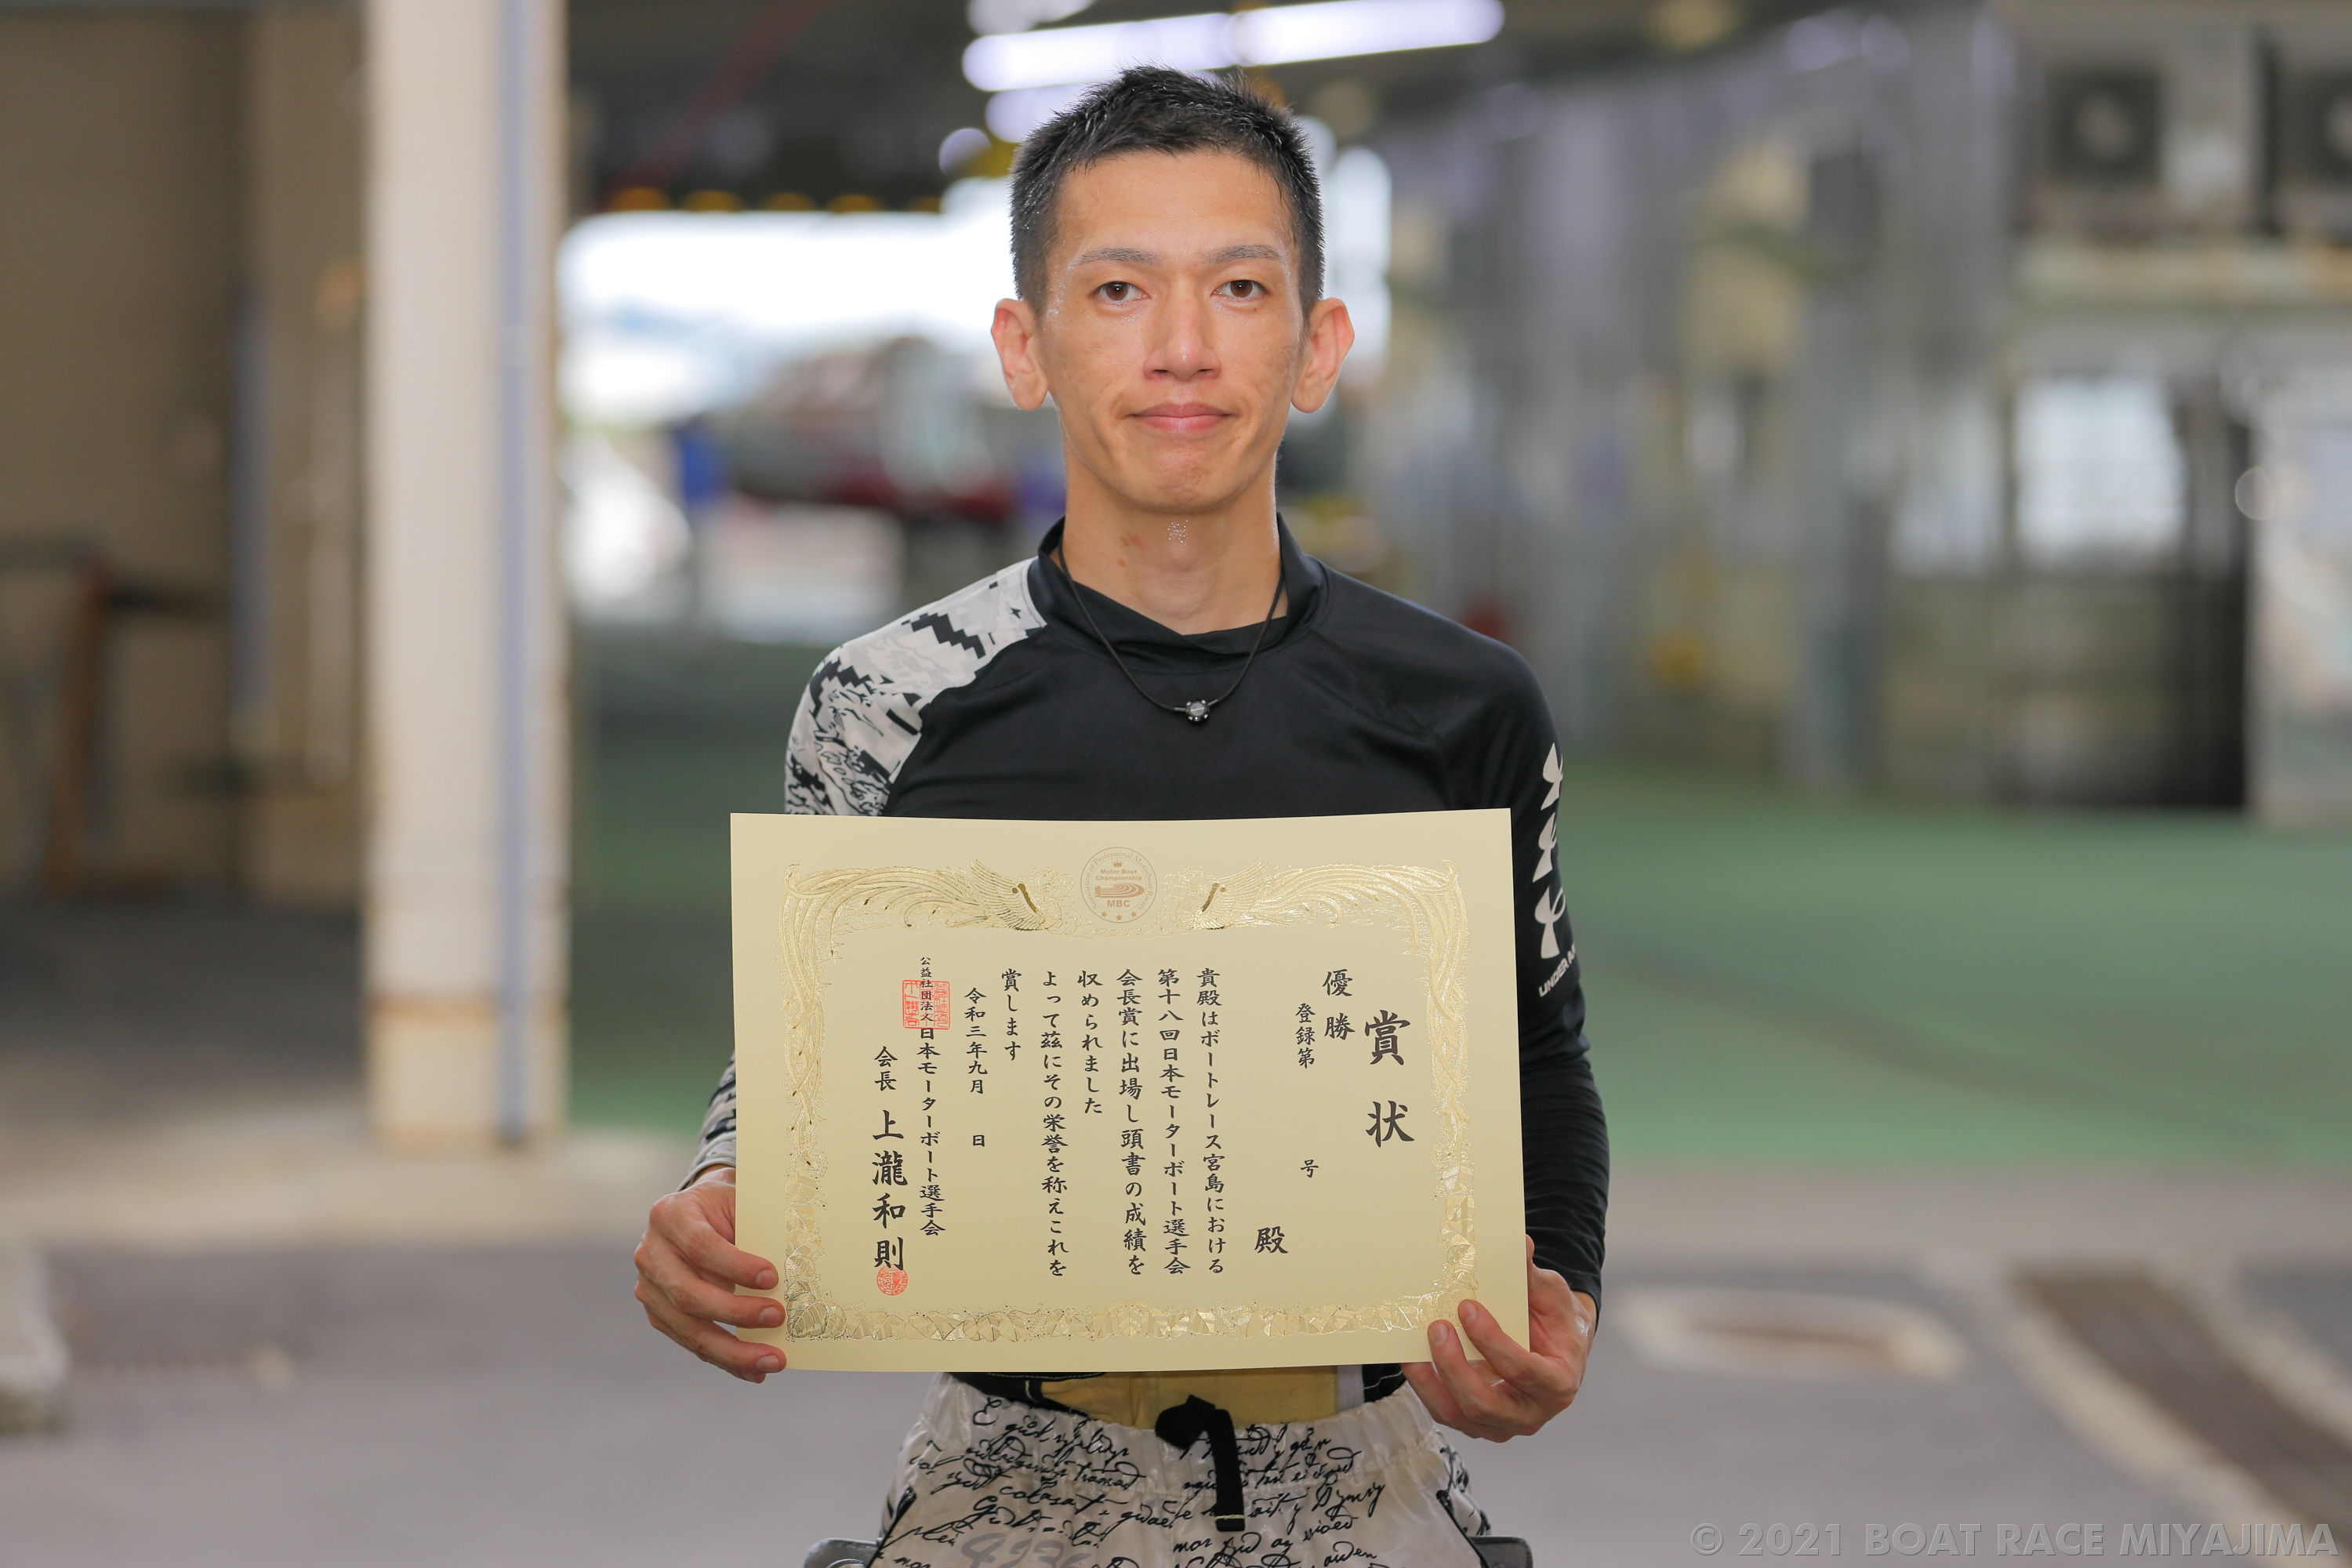 賞状
優勝
登録第 号
殿
貴殿はボートレース宮島における
第十八回日本モーターボート選手会
会長賞に出場し頭書の成績を
収められました
よって茲にその栄誉を称えこれを
賞します
令和三年九月 日
公益社団法人日本モーターボート選手会
会長 上瀧和則
Motor Boat
Championship
MBC
UNDER A
© 2021 BOAT RACE MIYAJIMA